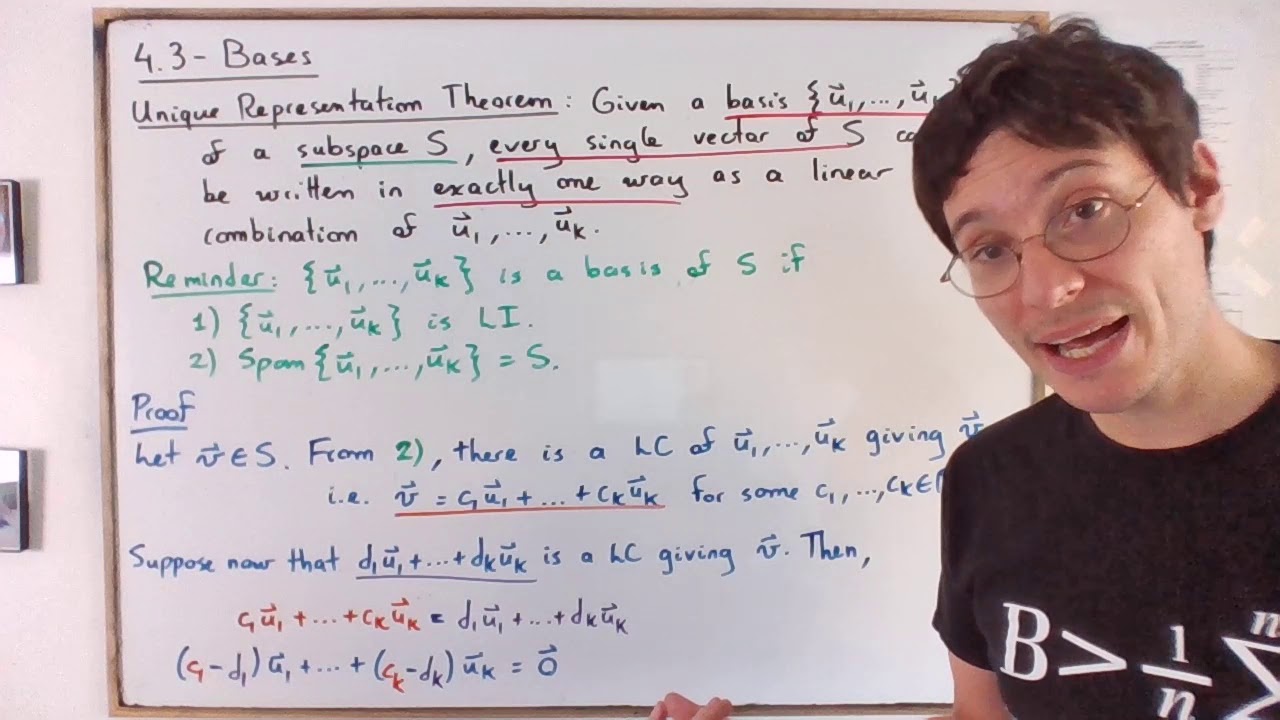 4.3 - Bases
Unique Representation Theorem: Given a basis {u⃗₁, ..., u⃗
of a subspace S, every single vector of S
be written in exactly one way as a linear
combination of u⃗₁, ..., u⃗ₖ.
Reminder: {u⃗₁, ..., u⃗ₖ} is a basis of S if
1) {u⃗₁, ..., u⃗ₖ} is LI.
2) Span{u⃗₁, ..., u⃗ₖ} = S.
Proof
Let v⃗ ∈ S. From 2), there is a LC of u⃗₁, ..., u⃗ₖ giving v⃗
i.e. v⃗ = c₁u⃗₁ + ... + cₖu⃗ₖ for some c₁, ..., cₖ ∈
Suppose now that d₁u⃗₁ + ... + dₖu⃗ₖ is a LC giving v⃗. Then,
c₁u⃗₁ + ... + cₖu⃗ₖ = d₁u⃗₁ + ... + dₖu⃗ₖ
(c₁ - d₁)u⃗₁ + ... + (cₖ - dₖ)u⃗ₖ = 0⃗
B > 1/n Σ